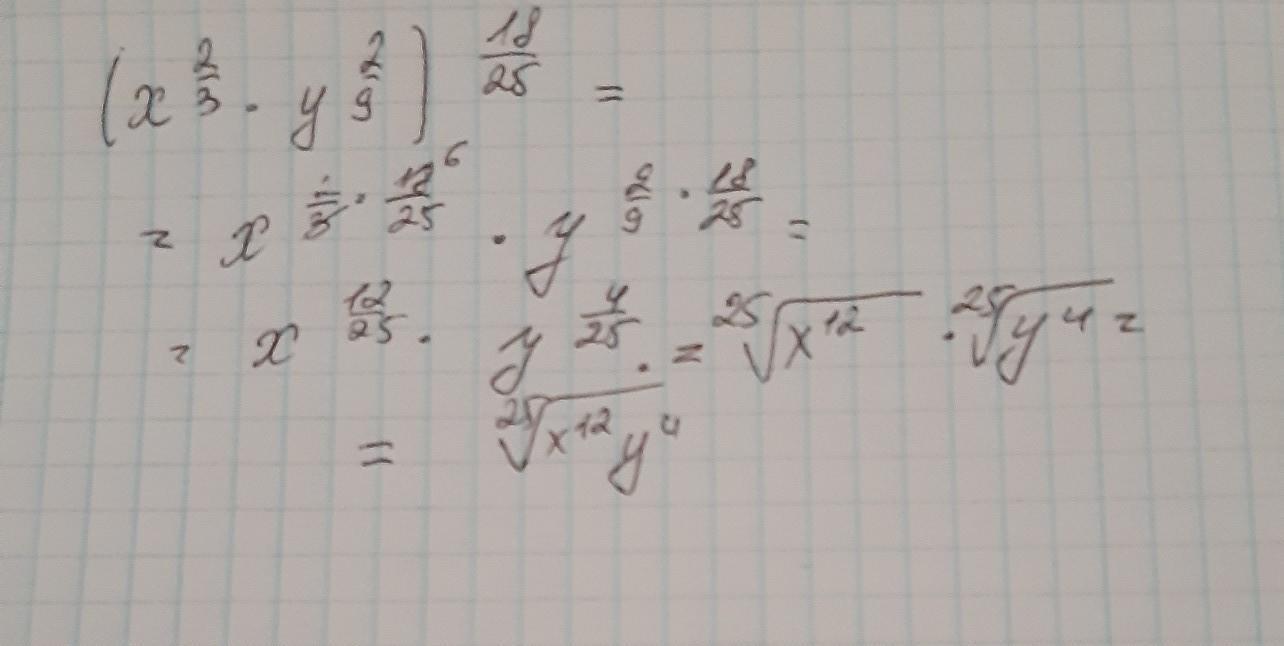 (x^(2/3) · y^(2/9))^(18/25) =
= x^(2/3 · 18/25) ^6 · y^(2/9 · 18/25) =
= x^(12/25) · y^(4/25) · = ²⁵√(x^12) · ²⁵√(y^4) =
= ²⁵√(x^12 y^4)